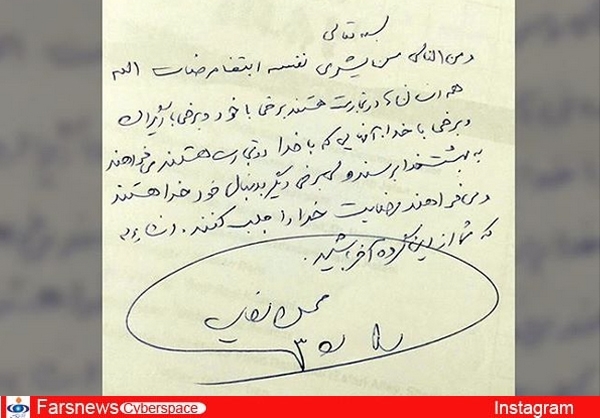 بسمه تعالی
و من الناس من یشری نفسه ابتغاء مرضات الله
همه انسان‌ها در تجارت هستند برخی با خود و برخی با دیگران
و برخی با خدا. آنهایی که با خدا در تجارت هستند می‌خواهند
به بهشت خدا برسند ولی برخی دیگر بدنبال خود خدا هستند
و می‌خواهند رضایت خدا را جلب کنند. انشاءالله
که شما از این گروه آخر باشید.
محسن رضایی
Farsnews Cyberspace Instagram